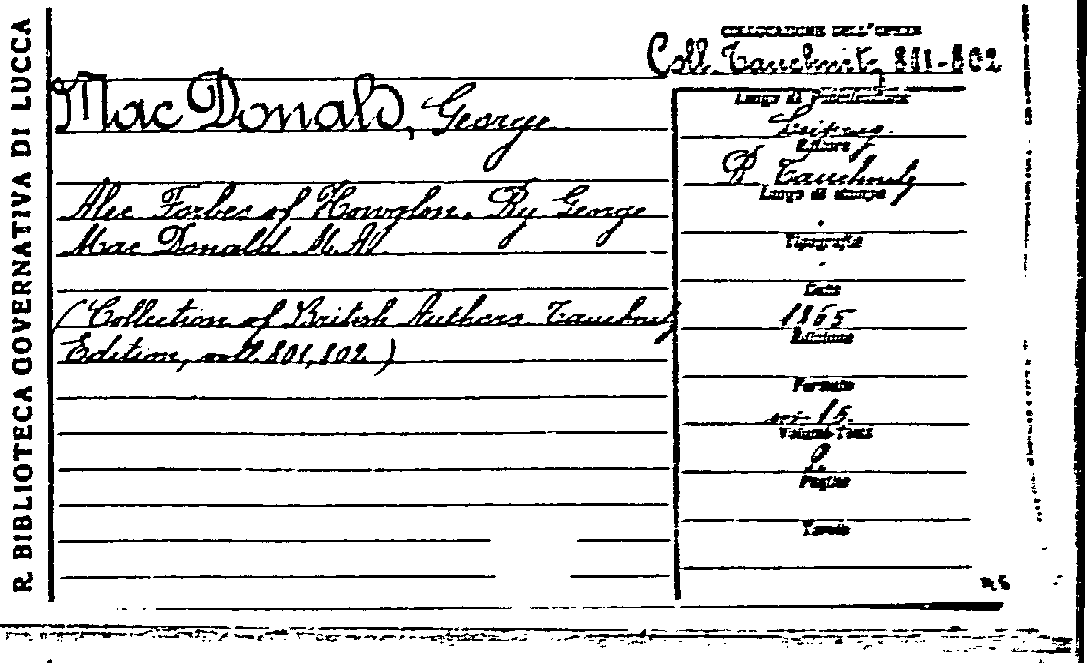 R. BIBLIOTECA GOVERNATIVA DI LUCCA
COLLOCAZIONE DELL'OPERA
Coll. Tauchnitz 801-802
Mac Donald, George
Alec Forbes of Howglen. By George
Mac Donald M. A.
(Collection of British Authors Tauchnitz
Edition, voll. 801, 802)
Luogo di Pubblicazione
Leipzig
Editore
B. Tauchnitz
Luogo di stampa
Tipografia
Data
1865
Edizione
Formato
in-16.
Volume-Tomo
2.
Pagine
Tavole